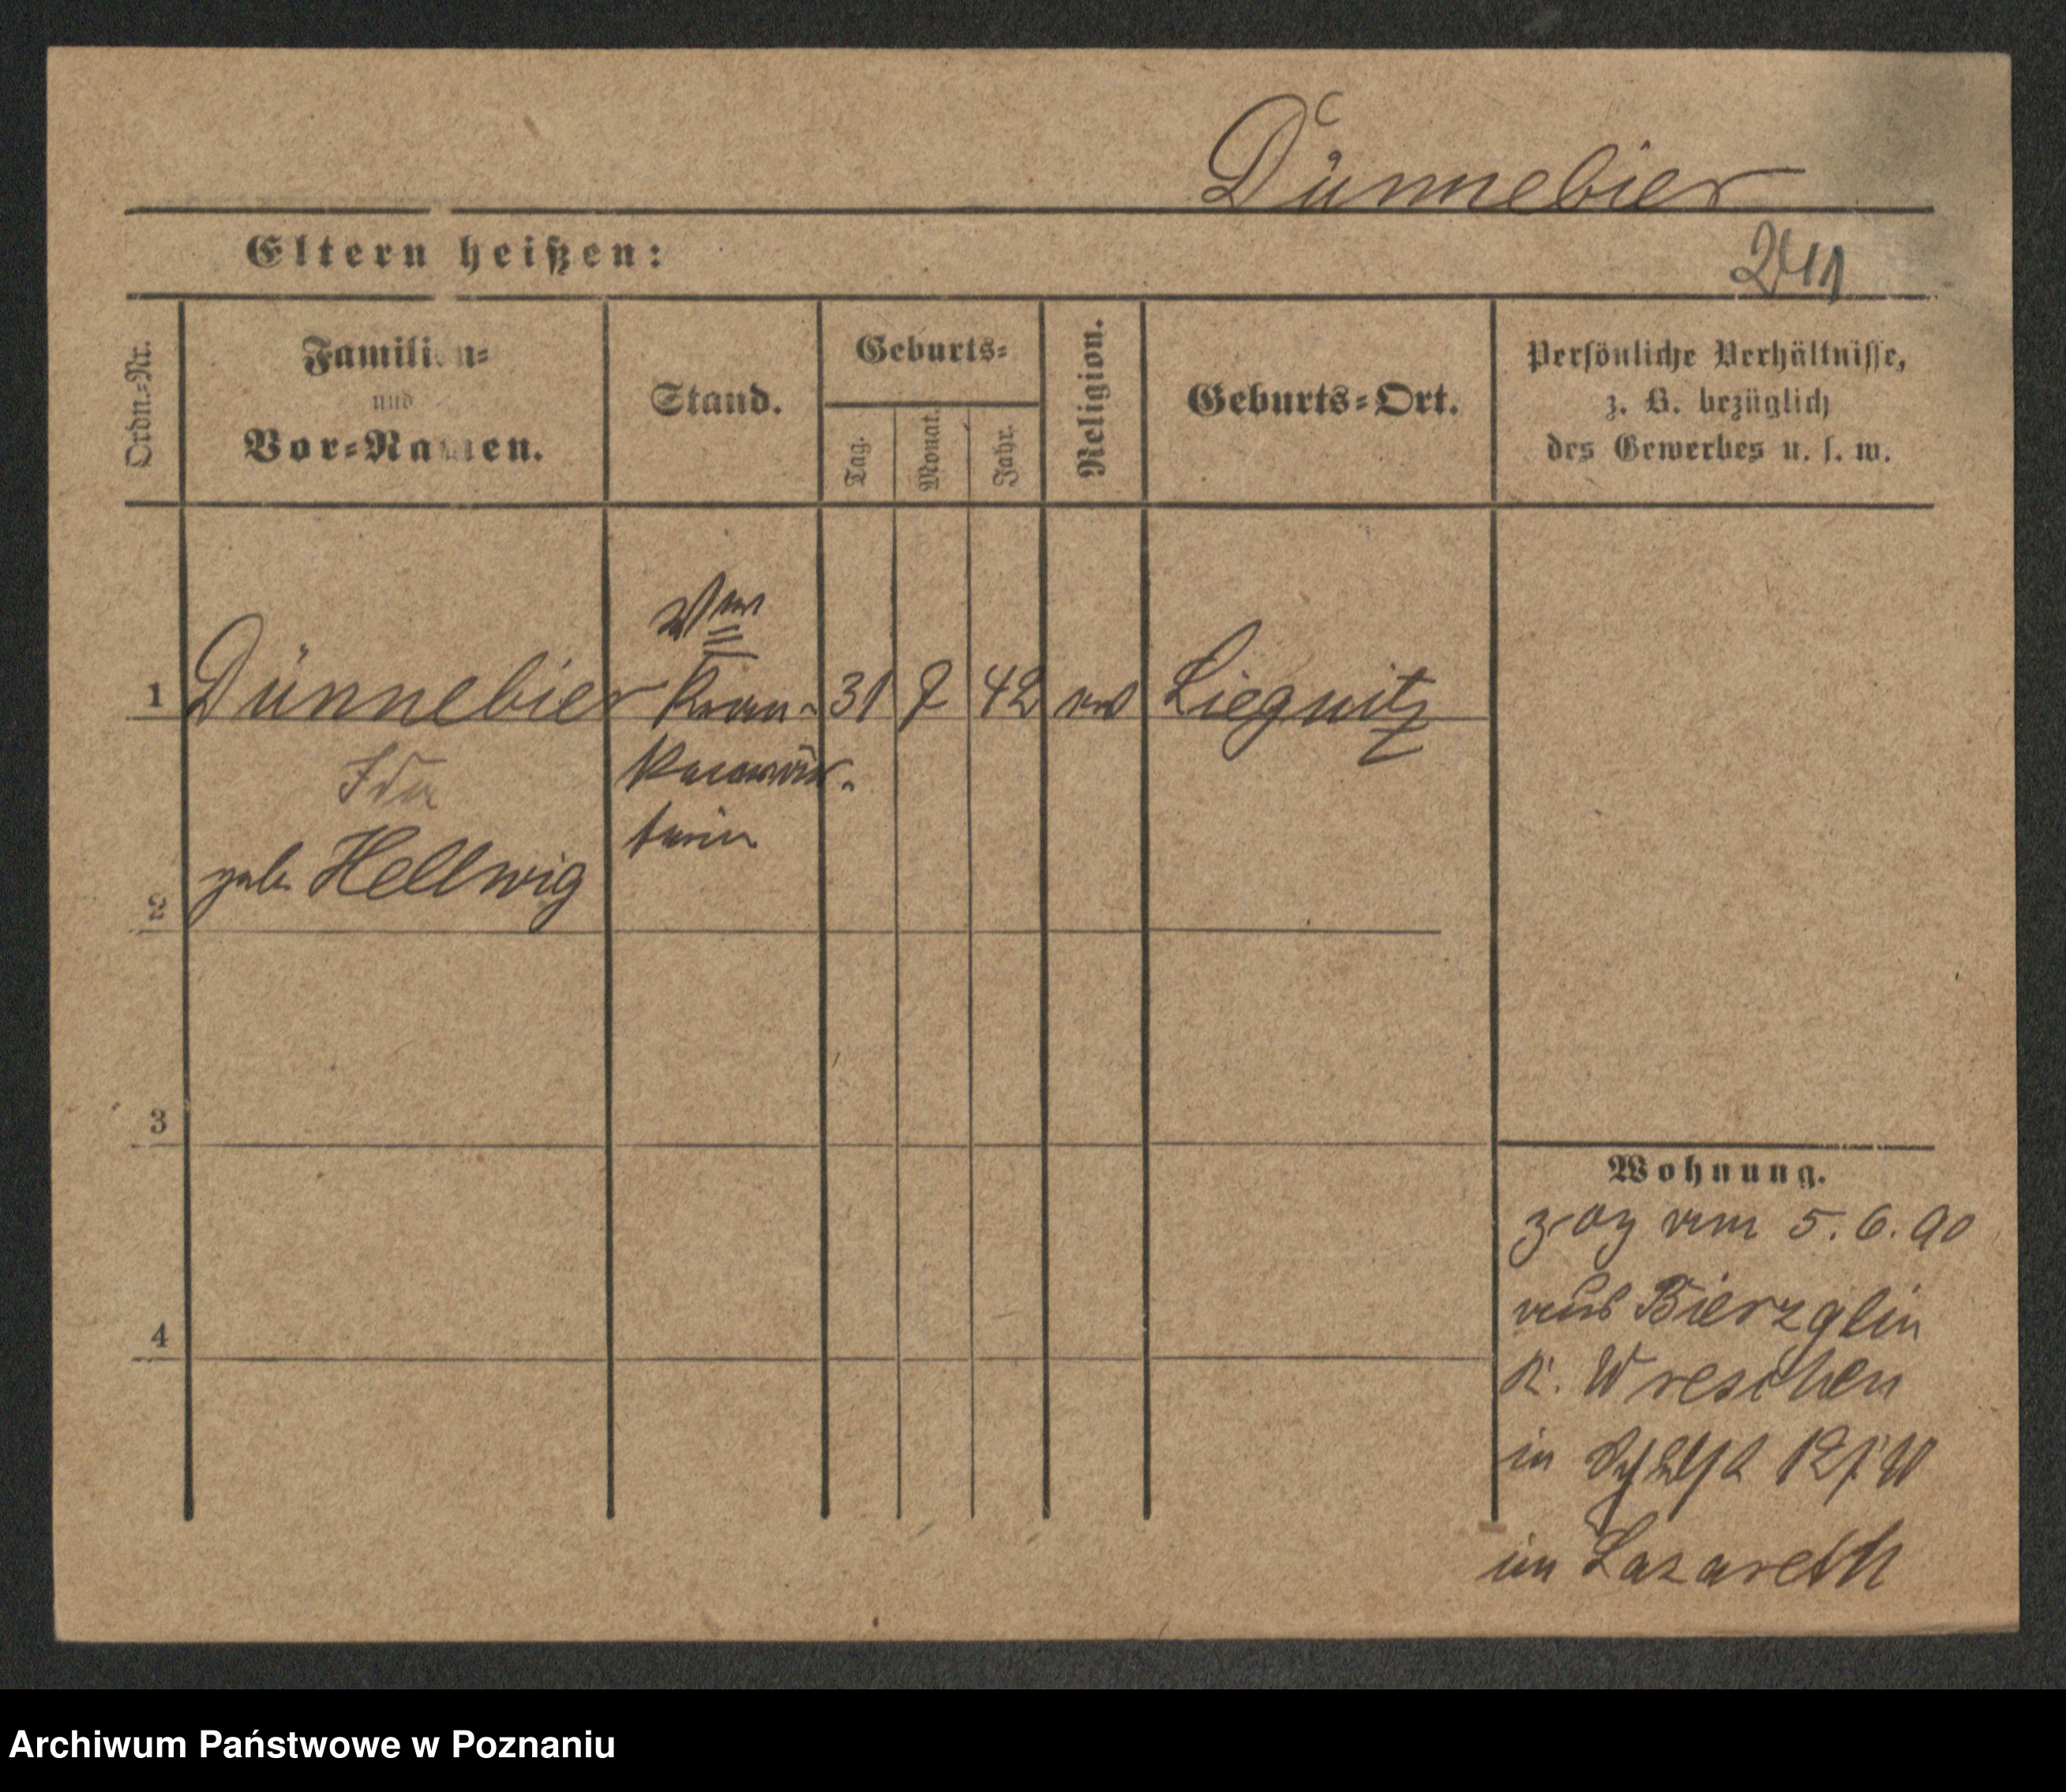 Dünnebier
Eltern heißen:
Ordn.-Nr.
Familien-
und
Vor-Namen.
Stand.
Geburts-
Tag.
Monat.
Jahr.
Religion.
Geburts-Ort.
Persönliche Verhältnisse,
z. B. bezüglich
des Gewerbes u. s. w.
Wwe
1 Dünnebier Kran- 31 7 42 ev Liegnitz
Ida kenwär-
terin
geb. Hellwig
2
3
4
Wohnung.
zog am 5.6.90
aus Bierzglin
K. Wreschen
in
im Lazareth
Archiwum Państwowe w Poznaniu